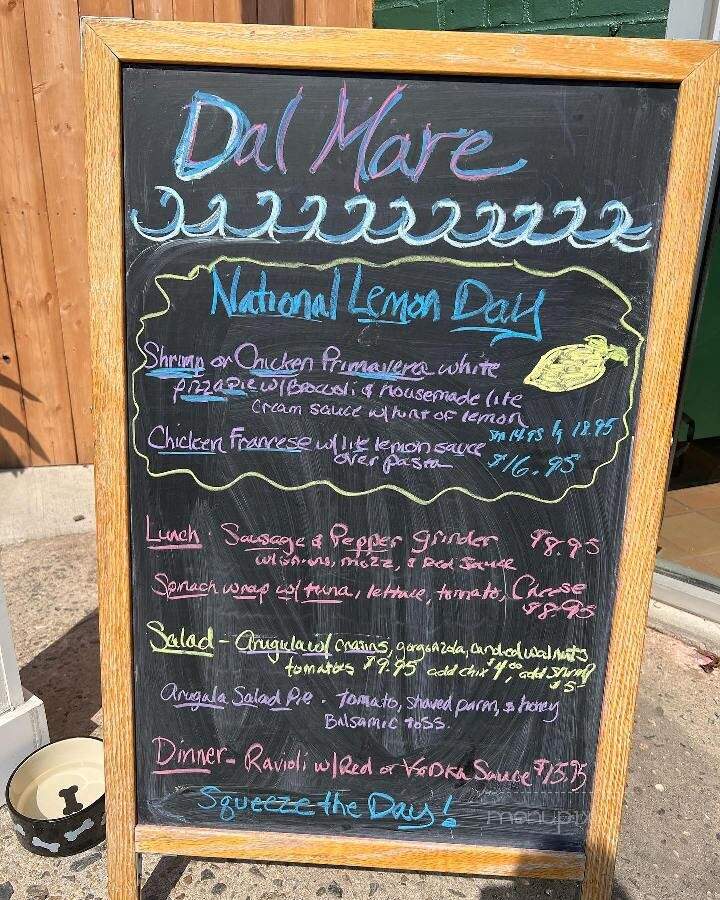 Dal Mare
National Lemon Day
Shrimp or Chicken Primavera white
pizza Pie w/Brocoli & housemade lite
cream sauce w/hint of lemon
sm 14.95 lg 18.95
Chicken Francese w/lite lemon sauce
over pasta $16.95
Lunch - Sausage & Pepper grinder $8.95
w/onions, mozz, & Red Sauce
Spinach wrap w/tuna, lettuce, tomato, Cheese
$8.95
Salad - Arugula w/ crasins, gorgonzola, candied walnuts
tomatoes $9.95 add chix $4.00, add shrimp
$5-
Arugala Salad Pie - Tomato, shaved parm, & honey
Balsamic toss.
Dinner - Ravioli w/Red or Vodka Sauce $15.95
Squeeze the Day!
menupix